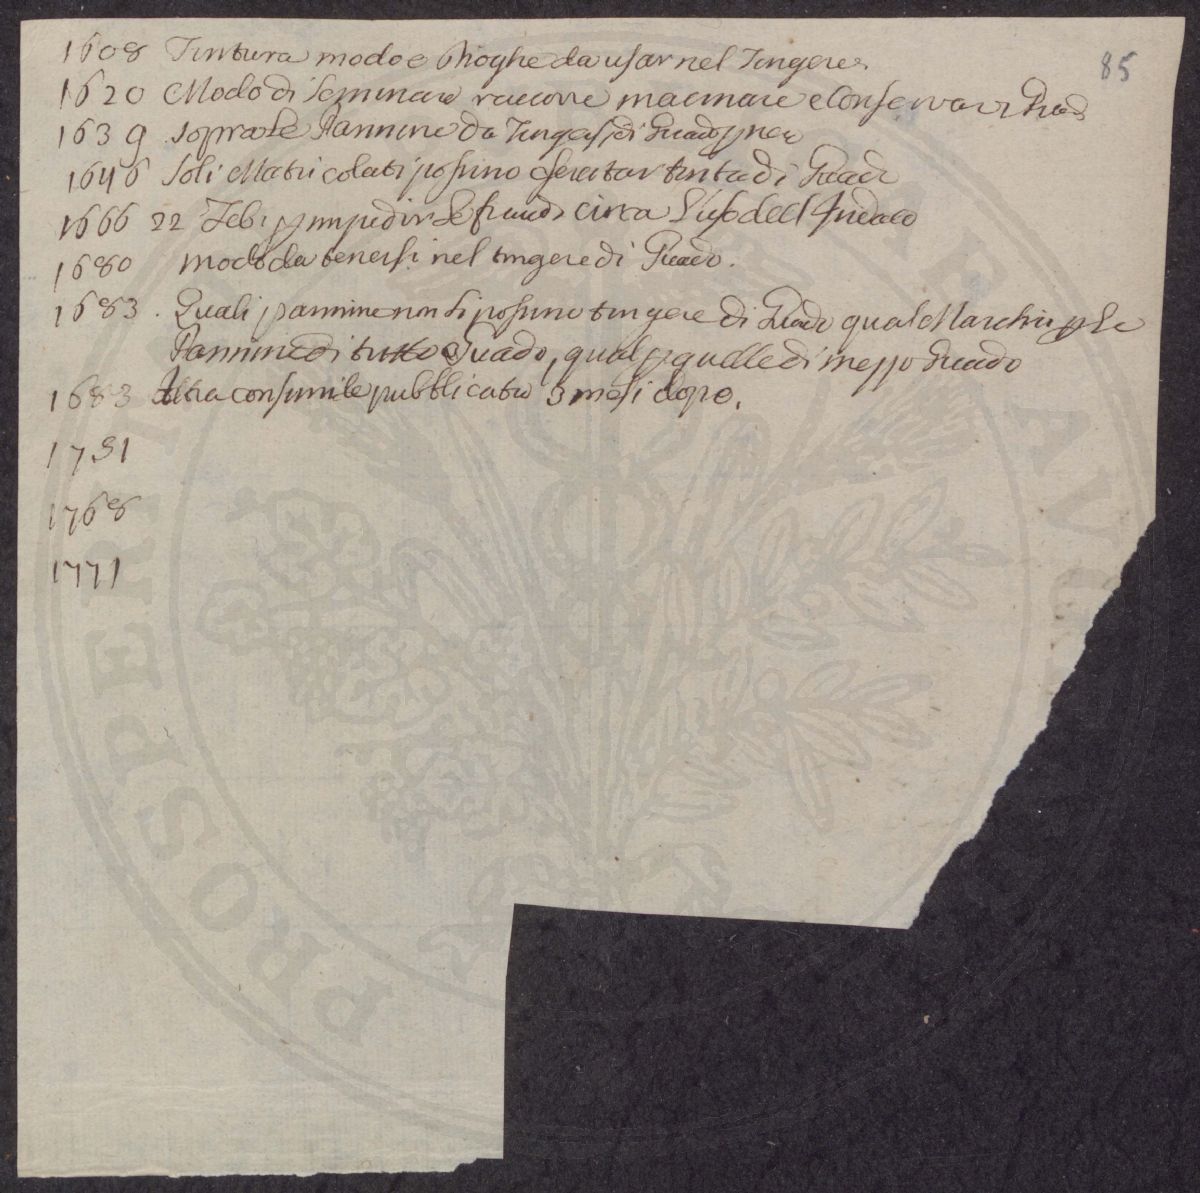 85
1608 Tintura modo e Droghe da usar nel Tingere
1620 Modo di Seminare raccorre macinare e Conservar il Guado
1639 sopra le Pannine da Tingersi di Guado p nero
1646 Soli Matricolati possino esercitar tinta di Guado
1666 22 Feb. p impedir le fraudi circa l'uso dell Indaco
1680 modo da tenersi nel tingere di Guado.
1683. Quali pannine non si possino tingere di Guado qual Marchio p le
Pannine di tutto Guado, qual p quelle di mezzo Guado
1683 Altra consimile pubblicata 3 mesi dopo.
1751
1768
1771
PROSPERI AVGE